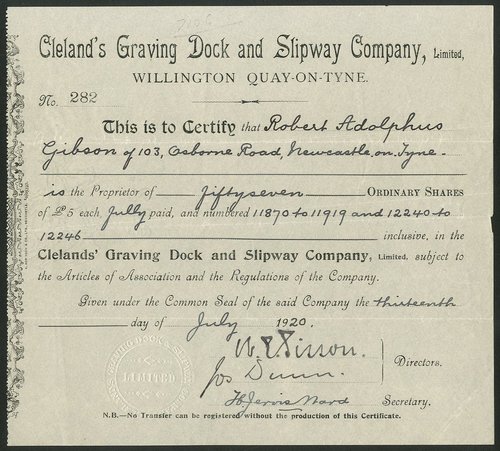 Cleland's Graving Dock and Slipway Company, Limited,
WILLINGTON QUAY-ON-TYNE.
No. 282
This is to Certify that Robert Adolphus
Gibson of 103, Osborne Road, Newcastle on Tyne
is the Proprietor of fiftyseven ORDINARY SHARES
of £5 each, fully paid, and numbered 11870 to 11919 and 12240 to
12246 inclusive, in the
Clelands' Graving Dock and Slipway Company, Limited, subject to
the Articles of Association and the Regulations of the Company.
Given under the Common Seal of the said Company the thirteenth
day of July 1920.
Jos Dunn.
Directors.
H Jervis Ward
Secretary.
LIMITED
N.B.—No Transfer can be registered without the production of this Certificate.